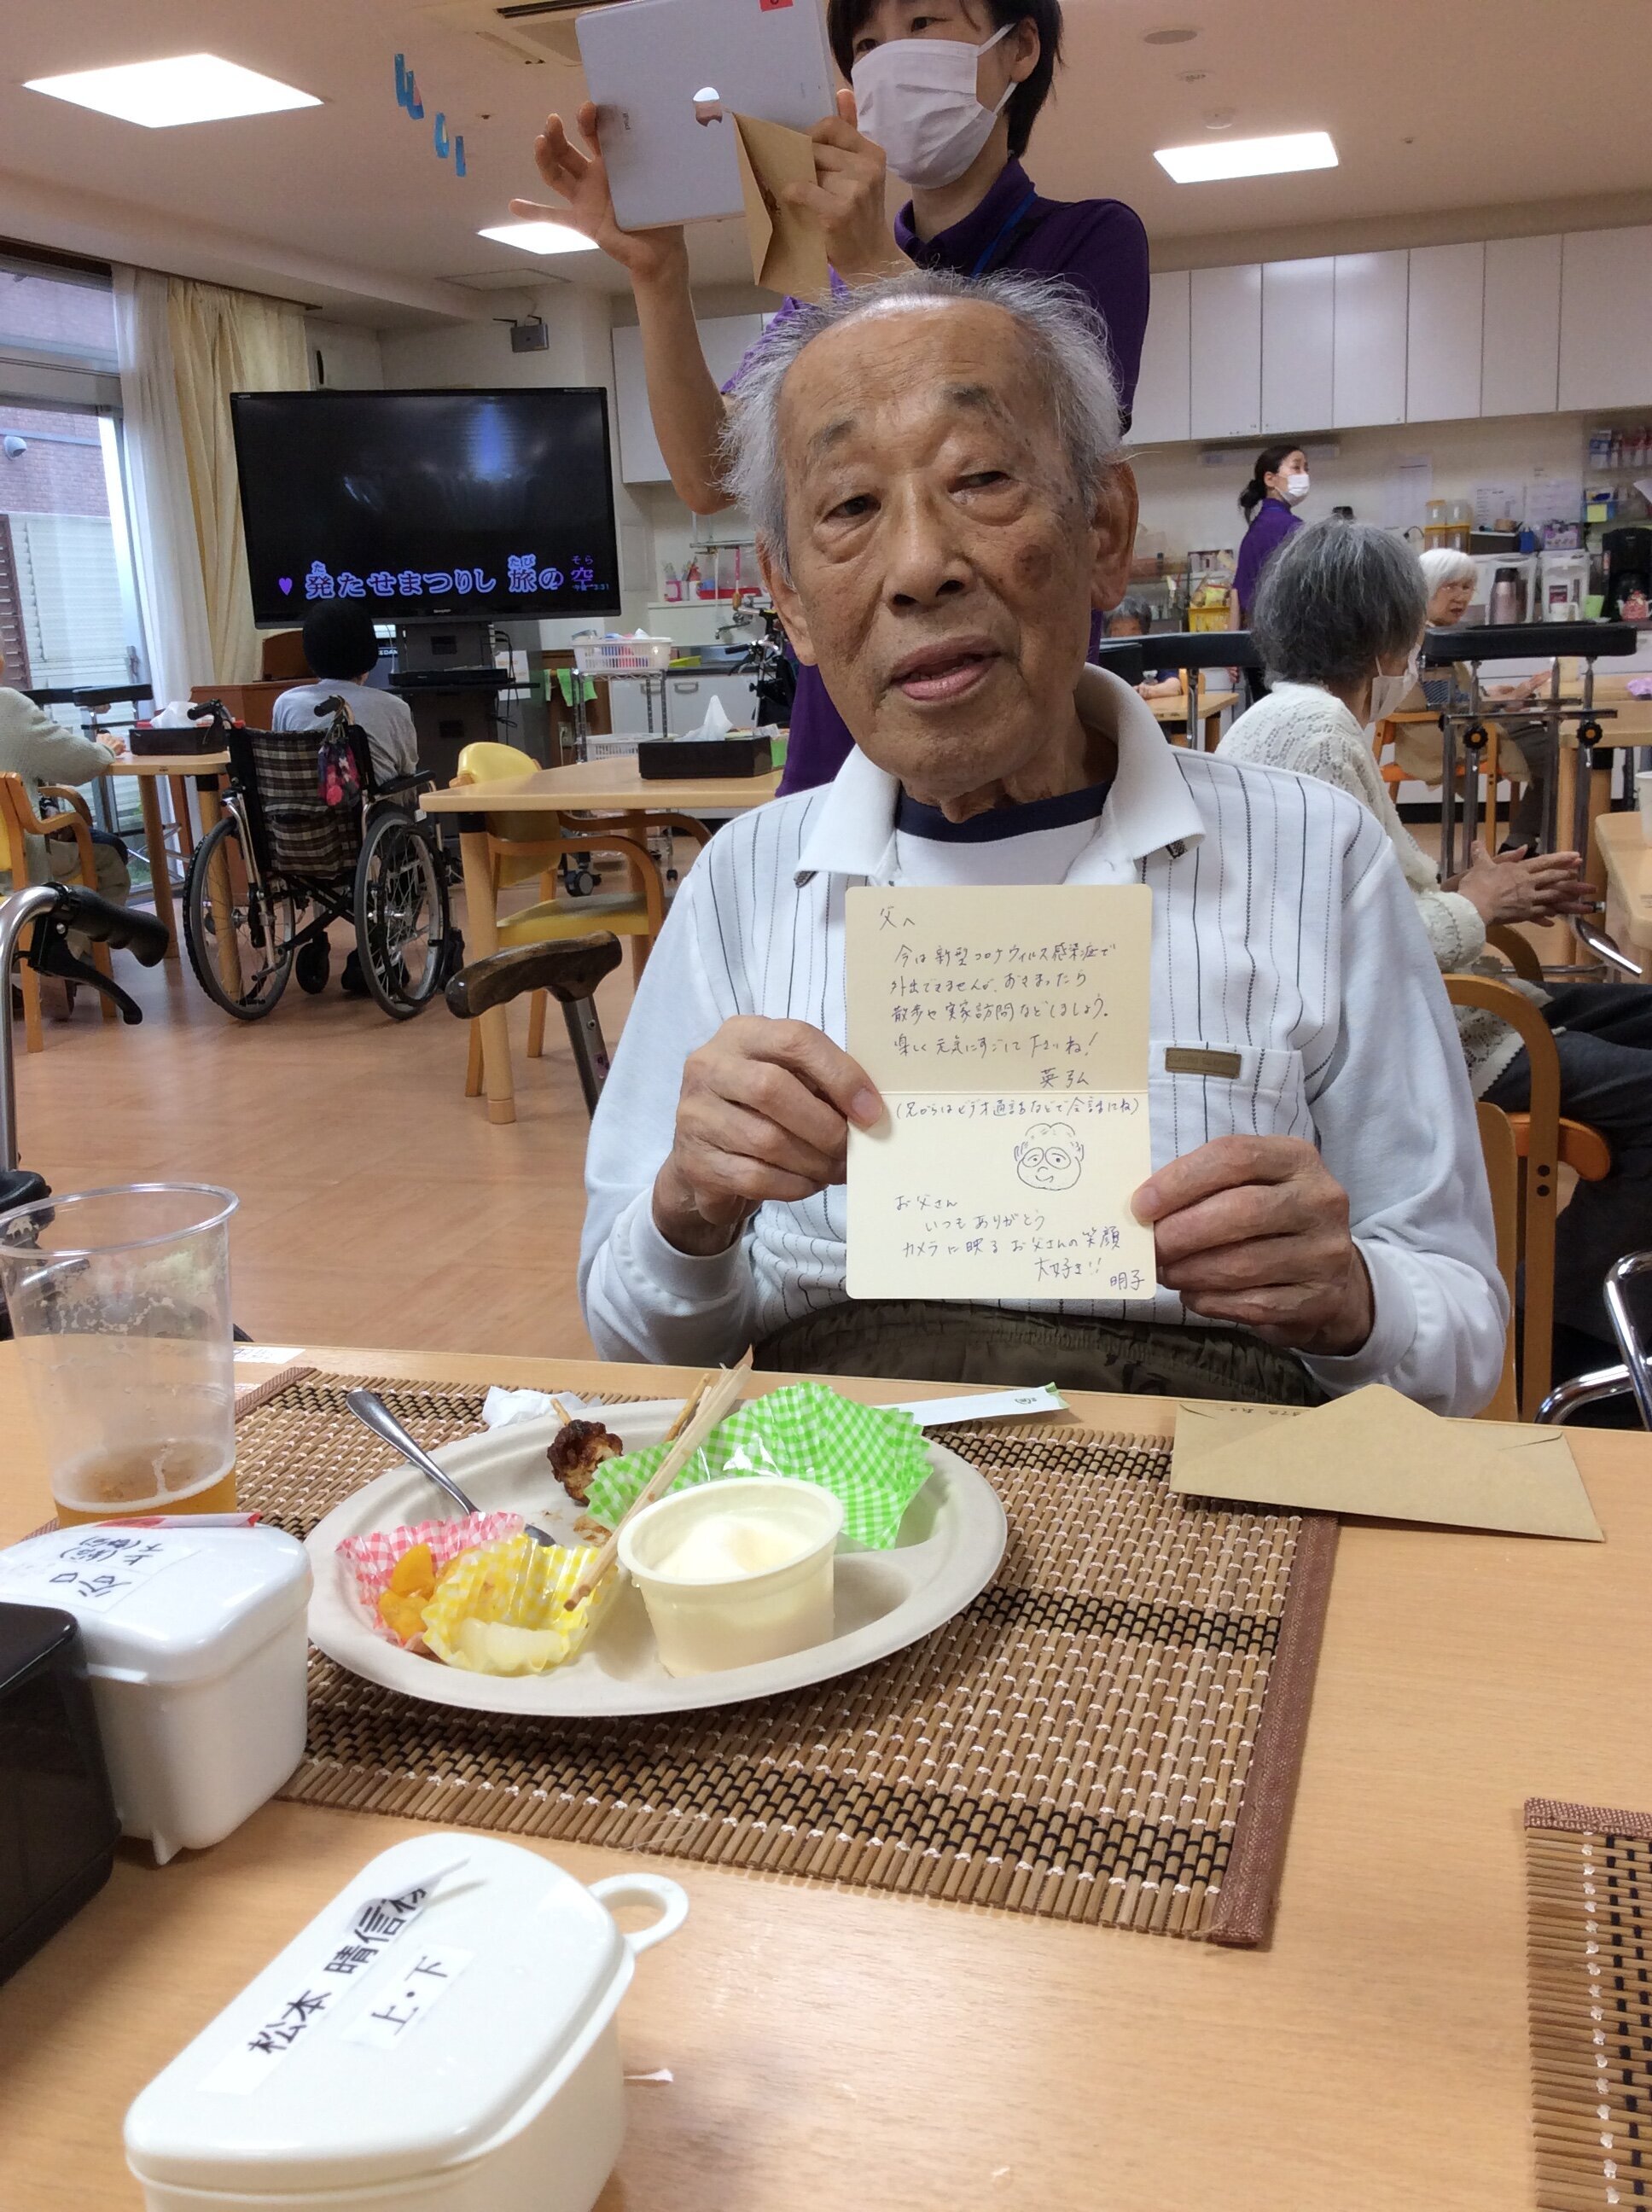 た たび そら
♥ 発たせまつりし 旅の空
父へ
今は新型コロナウィルス感染症で
外出できませんが、おさまったら
散歩や実家訪問などしましょう。
楽しく元気にすごして下さいね!
英弘
(兄からはビデオ通話などで会話にね)
お父さん
いつもありがとう
カメラに映るお父さんの笑顔
大好き!!
明子
松本 晴信様
上・下